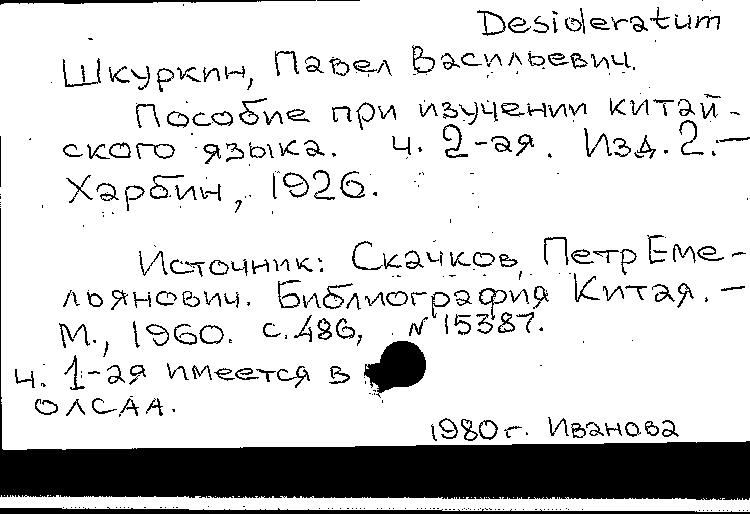 Desideratum
Шкуркин, Павел Васильевич.
Пособие при изучении китай-
ского языка. ч. 2-ая. Изд. 2. —
Харбин, 1926.
Источник: Скачков, Петр Еме-
льянович. Библиография Китая. —
М., 1960. с. 486, № 15387.
ч. 1-ая имеется в
ОЛСАА.
1980 г. Иванова